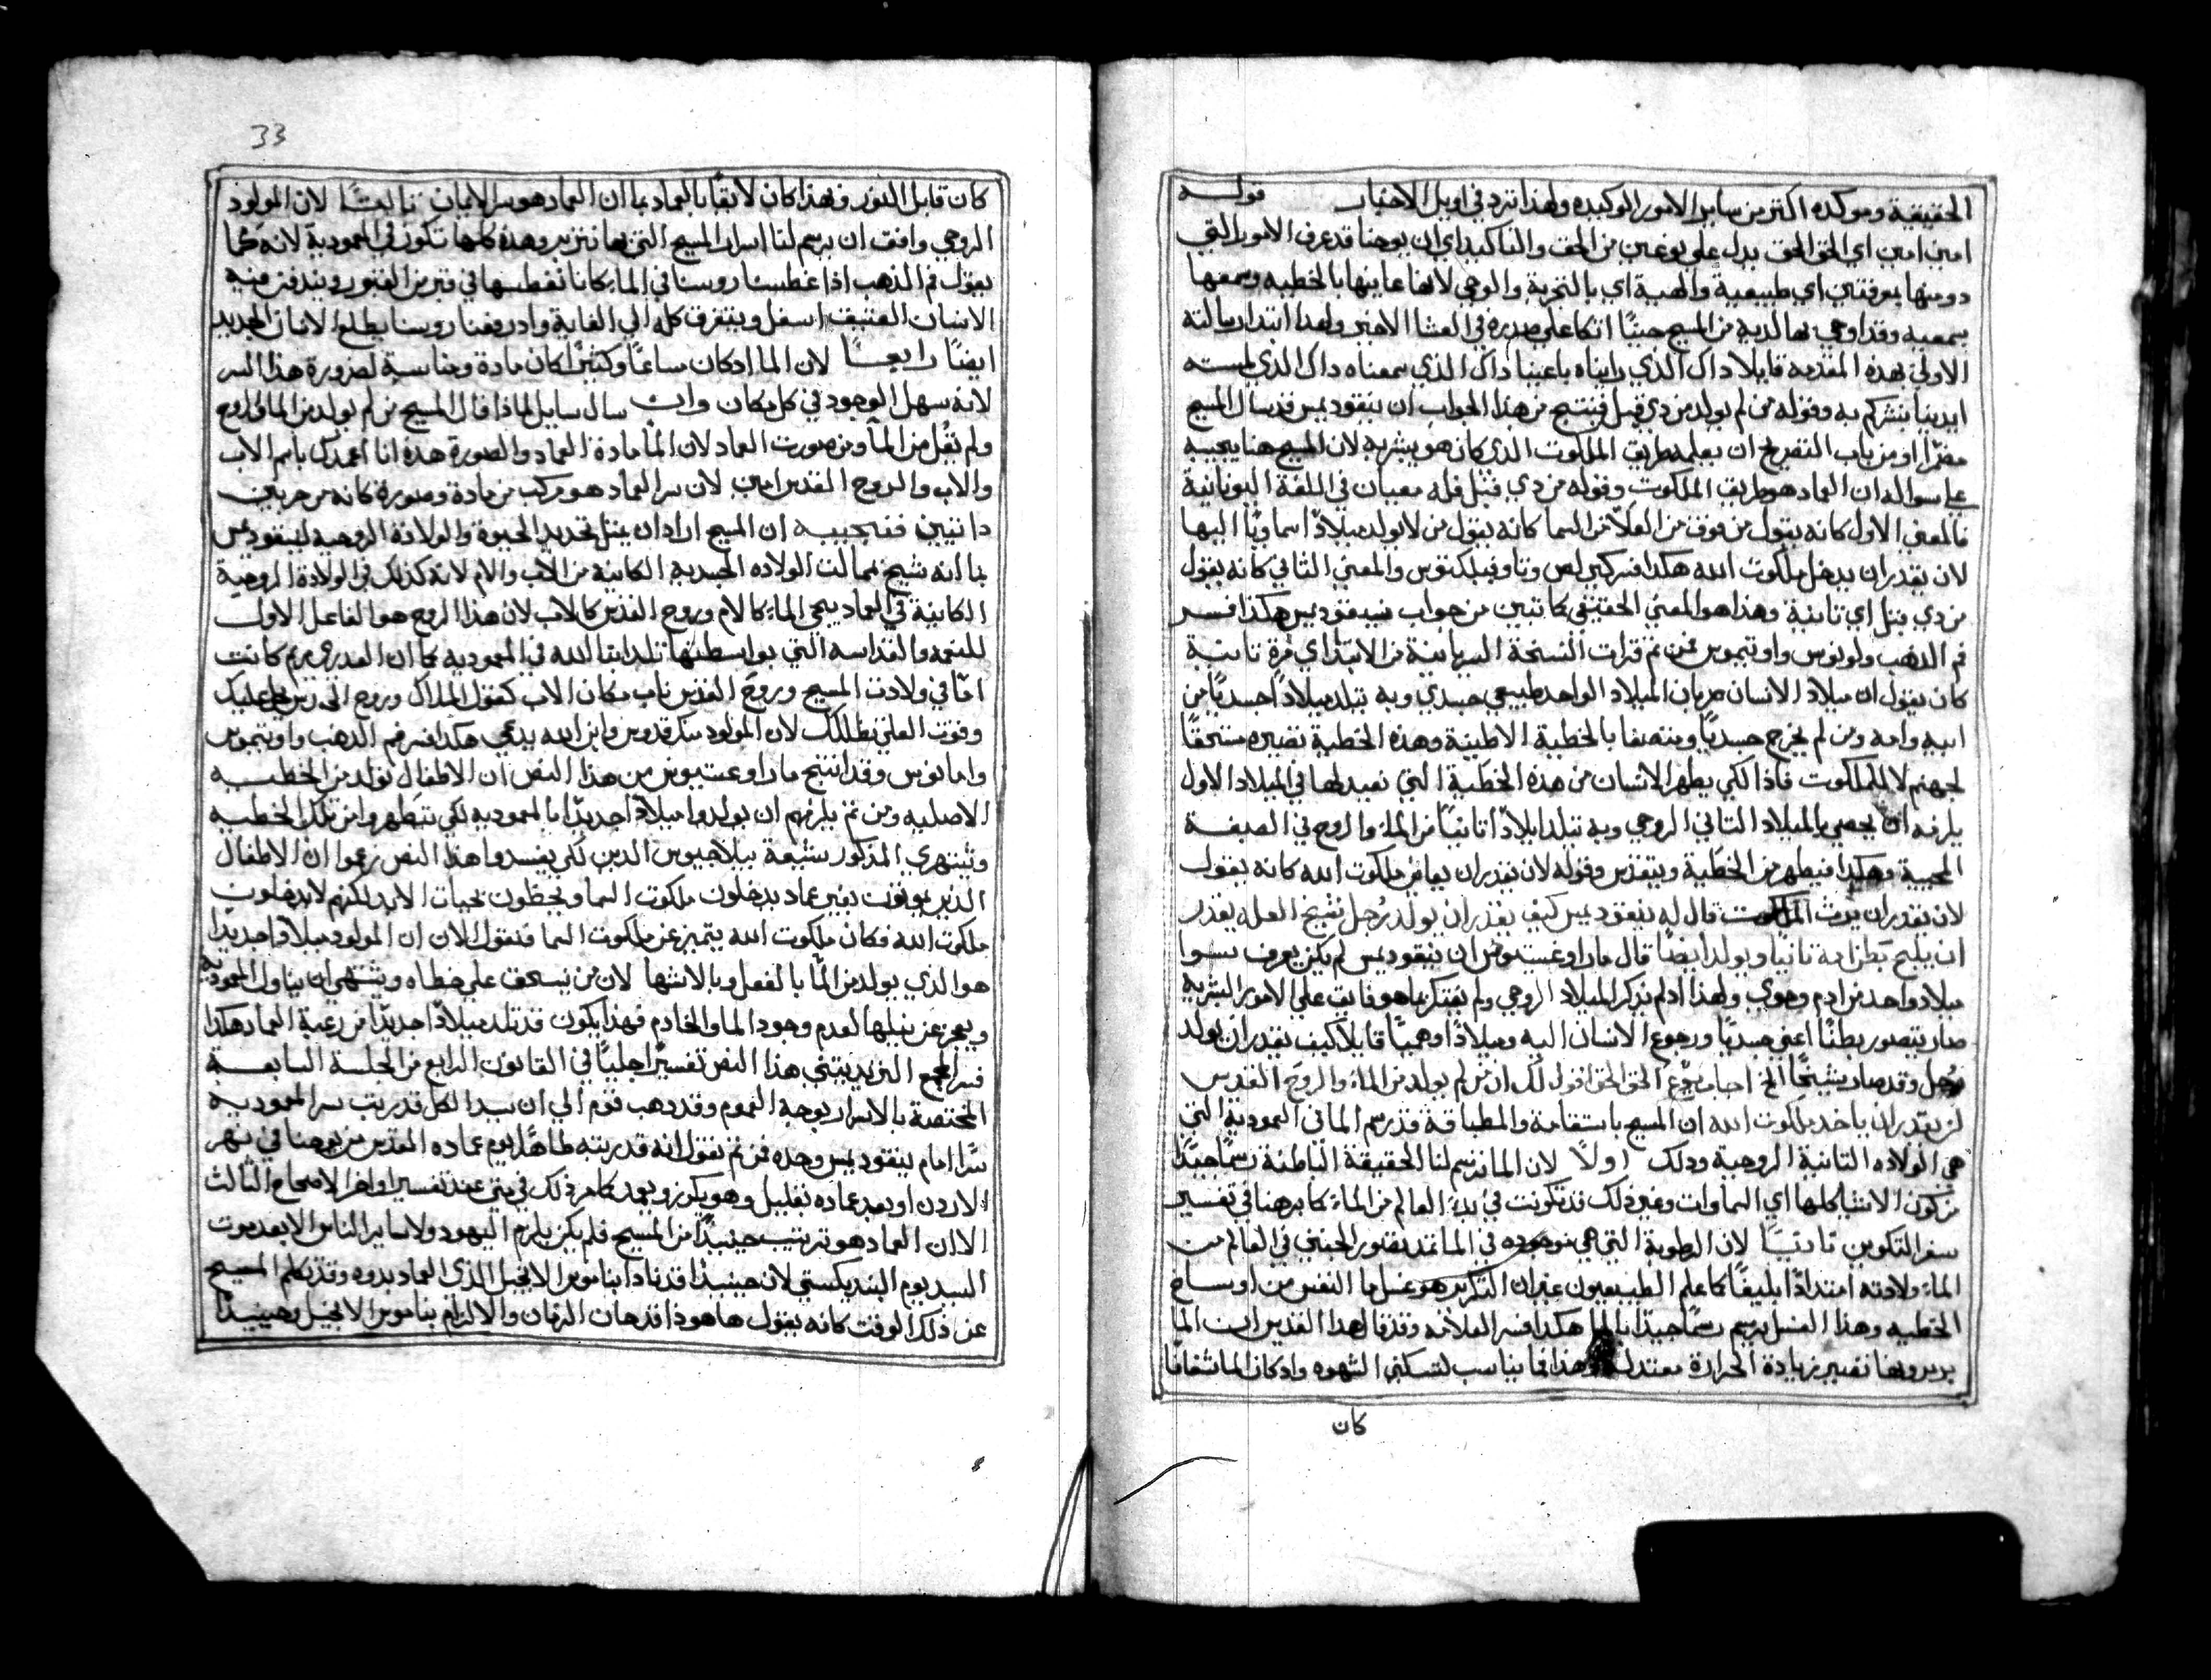 الحقيقية وموكده اكتر من ساير الامور الوكيده ولهذا ترد في اويل الاخبار قوله
امين امين اي الحق الحق يدل علي نوعين من الحق والتاكيد اي ان يوحنا قد عرف الامور التي
دونها بمعرفتين اي طبيعية والهية اي بالتجربة والوحي لانها عاينها بالخطيه وسمعها
بسمعيه وقد اوحي بها لديه من المسيح حينًا اتكا علي صدره في العشا الاخير ولهذا ابتدا رسالته
الاولي بهذه المقدمه قايلا داك الذي رايناه باعيننا داك الذي سمعناه داك الذي لمسته
ايدينا نبشركم به وقوله من لم يولد من دي قبل فينتج من هذا الجواب ان نيقوديمس قد سال المسيح
مضمرًا او من باب التصريح ان يعلمه طريق الملكوت الذي كان هو يبشر به لان المسيح هنا يجيبه
علي سواله ان العماد هو طريق الملكوت وقوله من دي قبل فله معنيان في اللغة اليونانية
فالمعني الاول كانه يقول من فوق من العلا من السما كانه يقول من لا يولد ميلادًا سماويًا اليها
لان يقدر ان يدخل ملكوت الله هكدا فسر كيرلص وتاوفيلكتوس والمعني الثاني كانه يقول
من دي قبل اي تانية وهذا هو المعني الحقيقي كما تبين من جواب نيقوديمس هكذا فسر
فم الدهب ولونوس واوتيميوس فمن تم قرات النسخة السريانية من الابتدا اي مرة تانية
كان يقول ان ميلاد الانسان ضربان الميلاد الواحد طبيعي جسدي وبه تتلد ميلادًا جسديًا من
ابيه وامه ومن تم يخرج جسديًا ومتصفا بالخطية الاصلية وهذه الخطية تصيره مستحقًا
لجهنم لا للملكوت فاذا لكي يطهر الانسان من هذه الخطية التي نعبد لها في الميلاد الاول
يلزمه ان يحصي بالميلاد التاني الروحي وبه تتلد ايلادًا تانيًا من الماء والروح في الصبغة
المحيية وهكدا فيطهر من الخطية ويتقدس وقوله لان يقدر ان يعاين ملكوت الله كانه يقول
لان يقدر ان يرث الملكوت قال له نيقوديمس كيف يقدر ان يولد رجل شيخ العله يقدر
ان يلج بطن امه تانيا ويولد ايضًا قال مار اوغستونوس ان نيقوديمس لم يكن يعرف سوا
ميلاد واحد من ادم وحوي ولهذا اد لم يدكر الميلاد الروحي ولم يفتكر بما هو فايق علي الامور البشرية
صار يتصور بطنًا اعني جسديًا ورجوع الانسان اليه وميلادًا وهميًا قايلا كيف يقدر ان يولد
رجل وقد صار شيخًا الخ اجاب يسوع الحق الحق اقول لك ان من لم يولد من الماء والروح القدس
لن يقدر ان ياخد ملكوت الله ان المسيح باستقامة والمطابقة قد رسم الما في المعمودية التي
هي الولاده التانية الروحية ودلك اولًا لان الما ترسم لنا الحقيقة الباطنة رسمًا جيدًا
من كون الاشيا كلها اي السماوات وغير ذلك قد تكونت في بدء العالم من الماء كما برهنا في تفسير
سفر التكوين تانيًا لان الرطوبة التي هي موجوده في الما تمتد بتصور الجنين في العالم من
الماء ولادته امتدادًا بليغًا كما علم الطبيعيون عن ان التكرير هو غسل ما النفس من اوساخ
الخطيه وهذا الغسل يرسم رسمًا جيدًا بالما هكذا فسر العلامه وقد قال هذا القديس ان الما
ببرودتها تصير زيادة الحرارة معتدله وهذا فما يناسب لتسكين الشهوه واد كان الما شفافًا
كان
33
كان قابل النور وبهذا كان لايقًا بالعماد بما ان العماد هو سر الايمان تالتًا لان المولود
الروحي وافق ان يرسم لنا اسرار المسيح التي بها نتبرر وهذه كلها تكون في المعمودية لانه كما
يقول فم الذهب اذا غطسنا روسنا في الماء كاننا نغطسها في قبر من القبور ويندفن منه
الانسان العتيق اسفل ويتغرق كله الي الغاية واد رفعنا روسنا يطلع الانسان الجديد
ايضًا رابعًا لان الما اد كان ساعًا وكثيرًا كان مادة ومناسبة لضرورة هذا السر
لانه سهل الوجود في كل مكان وان سال سايل لماذا قال المسيح من لم يولد من الما والروح
ولم يقُل من المآ ومن صورت العماد لان المآ مادة العماد والصورة هذه انا اعمدك باسم الاب
والابن والروح القدس امين لان سر العماد هو مركب من مادة وصورة كانه من جزيين
داتيين فنجيبه ان المسيح اراد ان يمتل تجديد الحيوة والولادة الروحيه لنيقوديمس
بما انه شيخ بمماثلت الولاده الجسدية الكاينة من الاب والام لانه كذلك في الولادة الروحية
الكاينة في العماد يجي الماء كالام وروح القدس كالاب لان هذا الروح هو الفاعل الاول
للنعمه والقداسه التي بواسطتها تلد ابنا الله في المعموديه كما ان العدري مريم كانت
امًا في ولادت المسيح وروح القدس ناب مكان الاب كقول الملاك وروح القدس يحل عليك
وقوت العلي تظللك لان المولود منك قدوس وابن الله يدعي هكذا فسر فم الدهب واوتيميوس
وامانوس وقد انتج مار اوغستينوس من هذا النص ان الاطفال تولد من الخطيه
الاصليه ومن تم يلزمهم ان يولدوا ميلادًا جديدًا بالمعموديه لكي تتطهروا من تلك الخطيه
ويستهزي المذكور بشيعة بيلاجيوس الدين لكي يفسدوا هذا النص زعموا ان الاطفال
الذين يموتون بغير عماد يدخلون ملكوت السما ويحظون بحيات الابد لكنهم لا يدخلون
ملكوت الله فكان ملكوت الله يتميز عن ملكوت السما فنقول الان ان المولود ميلادًا جديدًا
هو الذي يولد من المآ بالفعل وبالاشتها لان من يسحق علي خطاه ويشتهي ان يناول المعمودية
ويعجز عن نيلها لعدم وجود الما والخادم فهذا يكون قد تلد ميلادًا جديدًا من رغبة العماد هكذا
فسر المجمع التريدنتيني هذا النص تفسيرًا جليًا في القانون الرابع من الجلسة السابعة
المختصة بالاسرار بوجه العموم وقد دهب قوم الي ان سيد الكل قد رتب سر المعمودية
سرًا امام نيقوديمس وحده فمن تم نقول انه قد رتبه ظاهرًا يوم عماده المقدس من يوحنا في نهر
الاردن او بعد عماده بقليل وهو يكرز ويعمد كما مر ذلك في متي عند تفسير اواخر الاصحاح التالت
الا ان العماد هو ترتيب حينيدًا من المسيح فلم يكن يلزم اليهود ولا ساير الناس الا بعد موت
السيد يوم البنديكستي لان حينيدًا قد نادا بناموس الانجيل الذي العماد بدوه وقد تكلم المسيح
عن ذلك الوقت كانه يقول ها هوذا قد حان الزمان والالزام بناموس الانجيل وحينيدًا